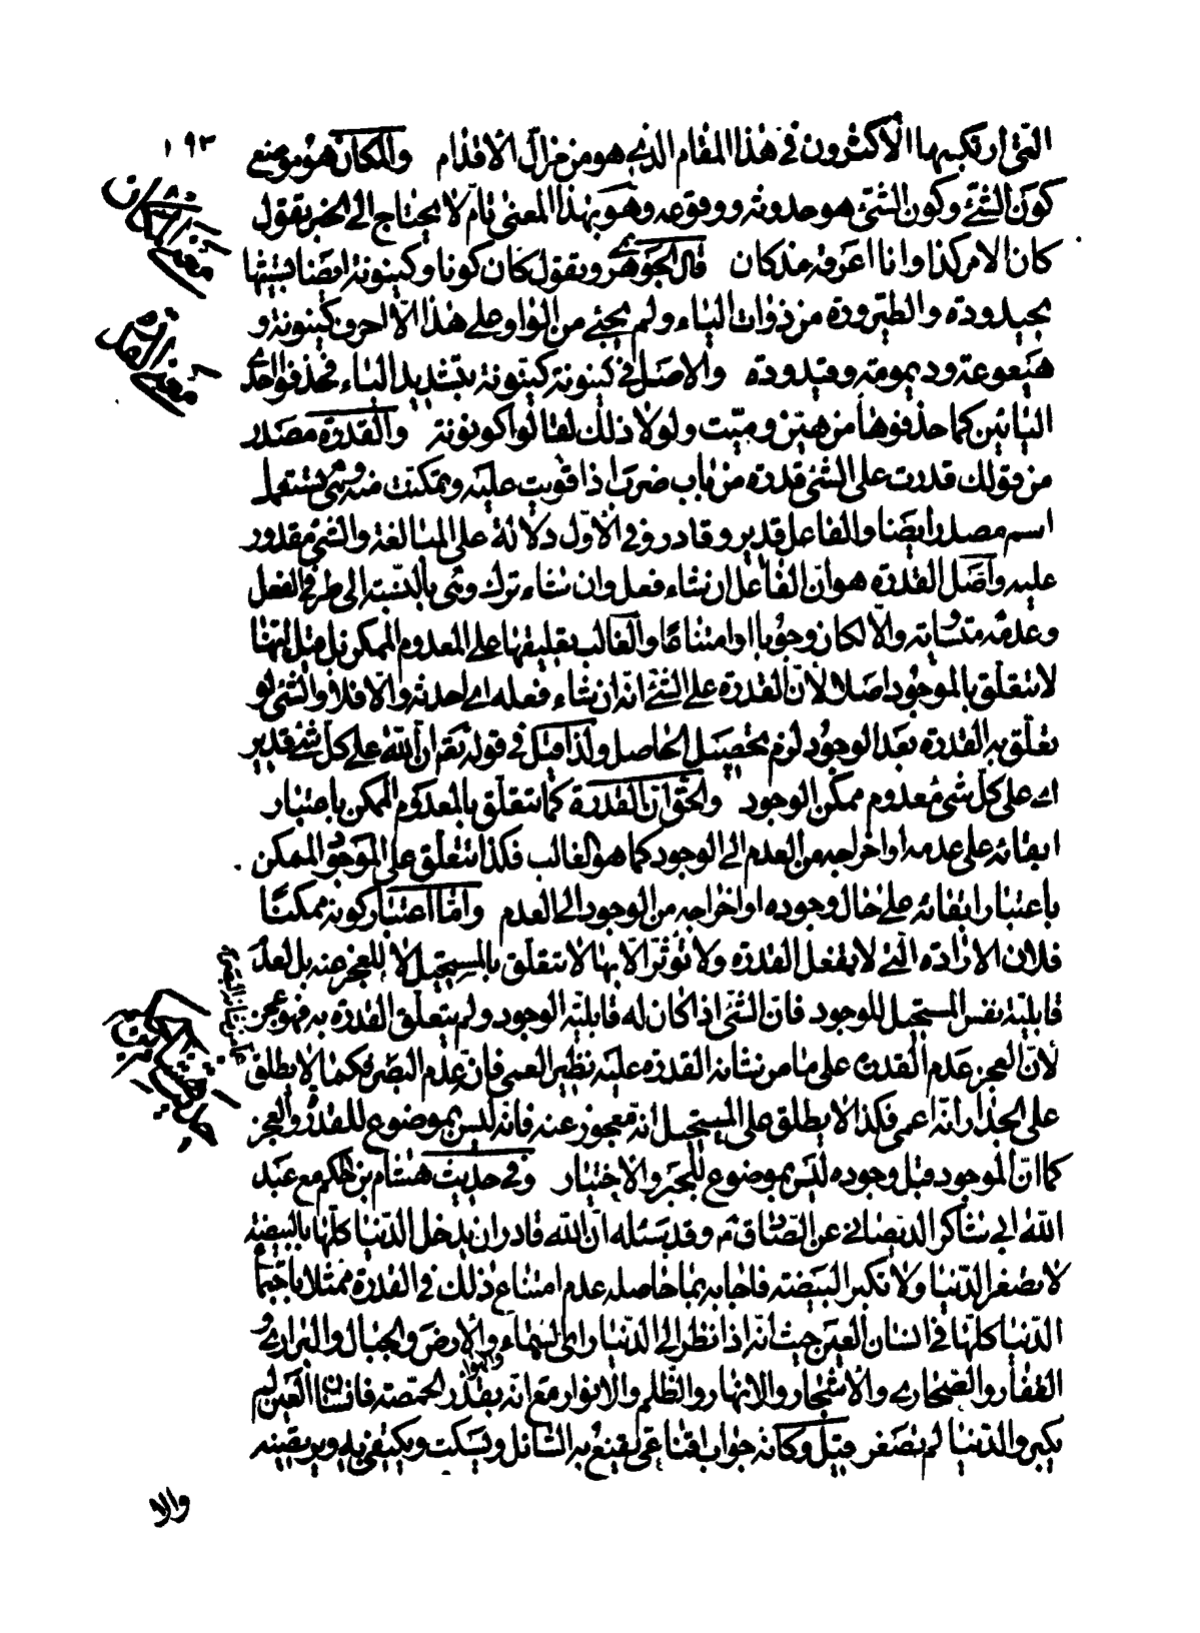 ١٩٣
التي ارتكبها الاكثرون في هذا المقام الذي هو من مزال الاقدام والمكان هو موضع
كون الشئ وكون الشئ هو حدوثه ووقوعه وهو بهذا المعنى تام لا يحتاج الى الخبر تقول
كان الامر كذا وانا اعرفه مذ كان قال الجوهري وتقول كان كونا وكينونة ايضا شبهها
بحيدودة والطيرورة من ذوات الياء ولم يجئ من الواو على هذا الا احرف كينونة و
هيعوعة وديمومة وقيدودة والاصل في كينونة كيّنونة بتشديد الياء فحذفوا احدى
اليائين كما حذفوها من هيّن وميّت ولولا ذلك لقالوا كونونة والقدرة مصدر
من قولك قدرت على الشئ قدرة من باب ضرب اذا قويت عليه وتمكنت منه وهي تستعمل
اسم مصدر ايضا والفاعل قدير وقادر وفي الاول دلالة على المبالغة والشئ مقدور
عليه واصل القدرة هو ان الفاعل ان شاء فعل وان شاء ترك وهي بالنسبة الى طرفي الفعل
وعدمه متساوية والا لكان وجوبا او امتناعا والغالب تعليقها على المعدوم الممكن بل قيل انها
لا تتعلق بالموجود اصلا لان القدرة على الشئ انه ان شاء فعله اي احدثه والا فلا والشئ لو
تعلق به القدرة بعد الوجود لزم تحصيل الحاصل ولذا قيل في قوله تعم ان الله على كل شئ قدير
اي على كل شئ معدوم ممكن الوجود والحق ان القدرة كما تتعلق بالمعدوم الممكن باعتبار
ابقائه على عدمه او اخراجه من العدم الى الوجود كما هو الغالب فكذا تتعلق على الموجود الممكن
باعتبار ابقائه على حال وجوده او اخراجه من الوجود الى العدم واما اعتبار كونه ممكنا
فلان الارادة التي لا تفعل القدرة ولا تؤثر الا بها لا تتعلق بالمستحيل لا للعجز عنه بل لعدم
قابلية نفس المستحيل للوجود فان الشئ اذا كان له قابلية الوجود ولم يتعلق القدرة به فهو عجز
لان العجز عدم القدرة على ما من شانه القدرة عليه نظير العمى فانه عدم البصر فكما لا يطلق
على الجدار انه اعمى فكذا لا يطلق على المستحيل انه معجوز عنه فانه ليس بموضوع للقدرة والعجز
كما ان الموجود قبل وجوده ليس بموضوع للجبر والاختيار وفي حديث هشام بن الحكم مع عبد
الله ابي شاكر الديصاني عن الصادق م وقد سئله ان الله قادر ان يدخل الدنيا كلها بالبيضة
لا يصغر الدنيا ولا تكبر البيضة فاجابه بما حاصله عدم امتناع ذلك في القدرة ممثلا باجتماع
الدنيا كلها في انسان العين حيث انه اذا نظر الى الدنيا راى السماء والارض والجبال والبراري و
القفار والصحاري والاشجار والانهار والظلم والانوار والهواء مع انه بقدر الحمصة فانسان العين لم
يكبر والدنيا لم تصغر قيل وكانه جواب اقناعي يقنع به السائل ويسكت ويكتفي به ويرتضيه
والا
معنى المكان
معنى القدرة